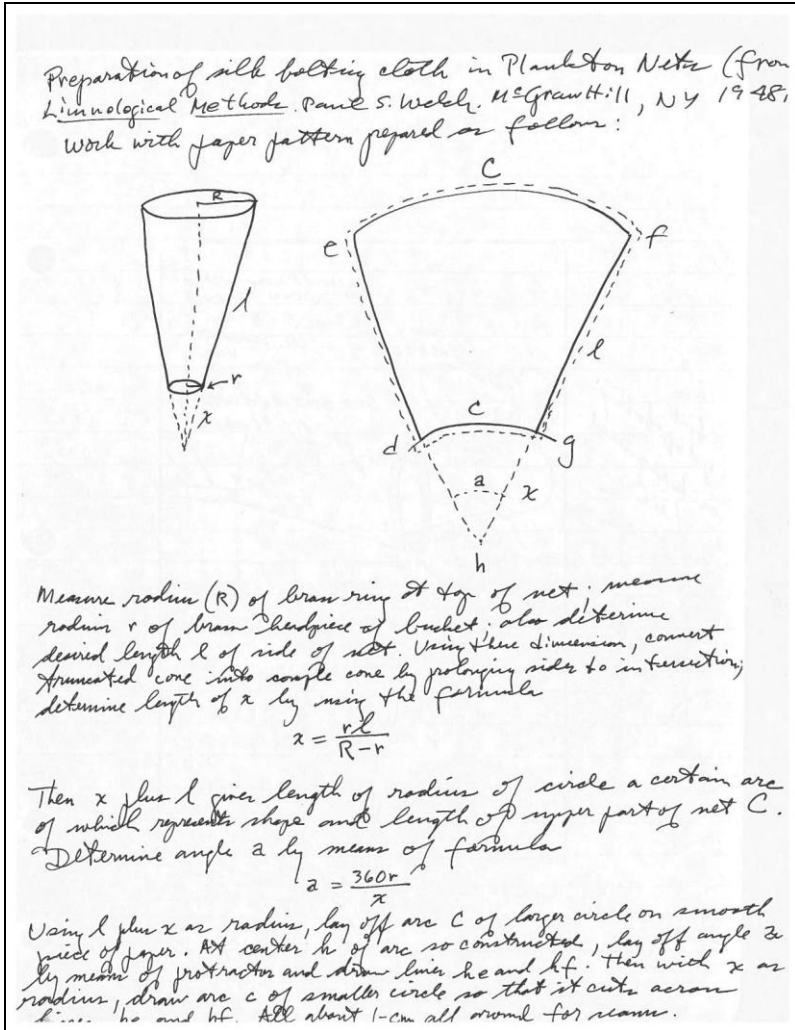 Preparation of silk bolting cloth in Plankton Nets (from
Limnological Methods. Paul S. Welch. McGraw Hill, NY 1948,
Work with paper pattern prepared as follows:
R
C
e
f
l
l
r
c
x
d
g
a
x
h
Measure radius (R) of brass ring at top of net; measure
radius r of brass headpiece of bucket; also determine
desired length l of side of net. Using these dimension, convert
truncated cone into couple cone by prolonging sides to intersection;
determine length of x by using the formula
x = rl / R-r
Then x plus l gives length of radius of circle a certain arc
of which represents shape and length of upper part of net C.
Determine angle a by means of formula
a = 360r / x
Using l plus x as radius, lay off arc C of larger circle on smooth
piece of paper. At center h of arc so constructed, lay off angle a
by means of protractor and draw lines he and hf. Then with x as
radius, draw arc c of smaller circle so that it cuts across
lines he and hf. All about 1-cm all around for seams.